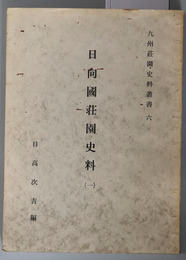 九州荘園史料叢書 六
日向國荘園史料
(一)
日高次吉編